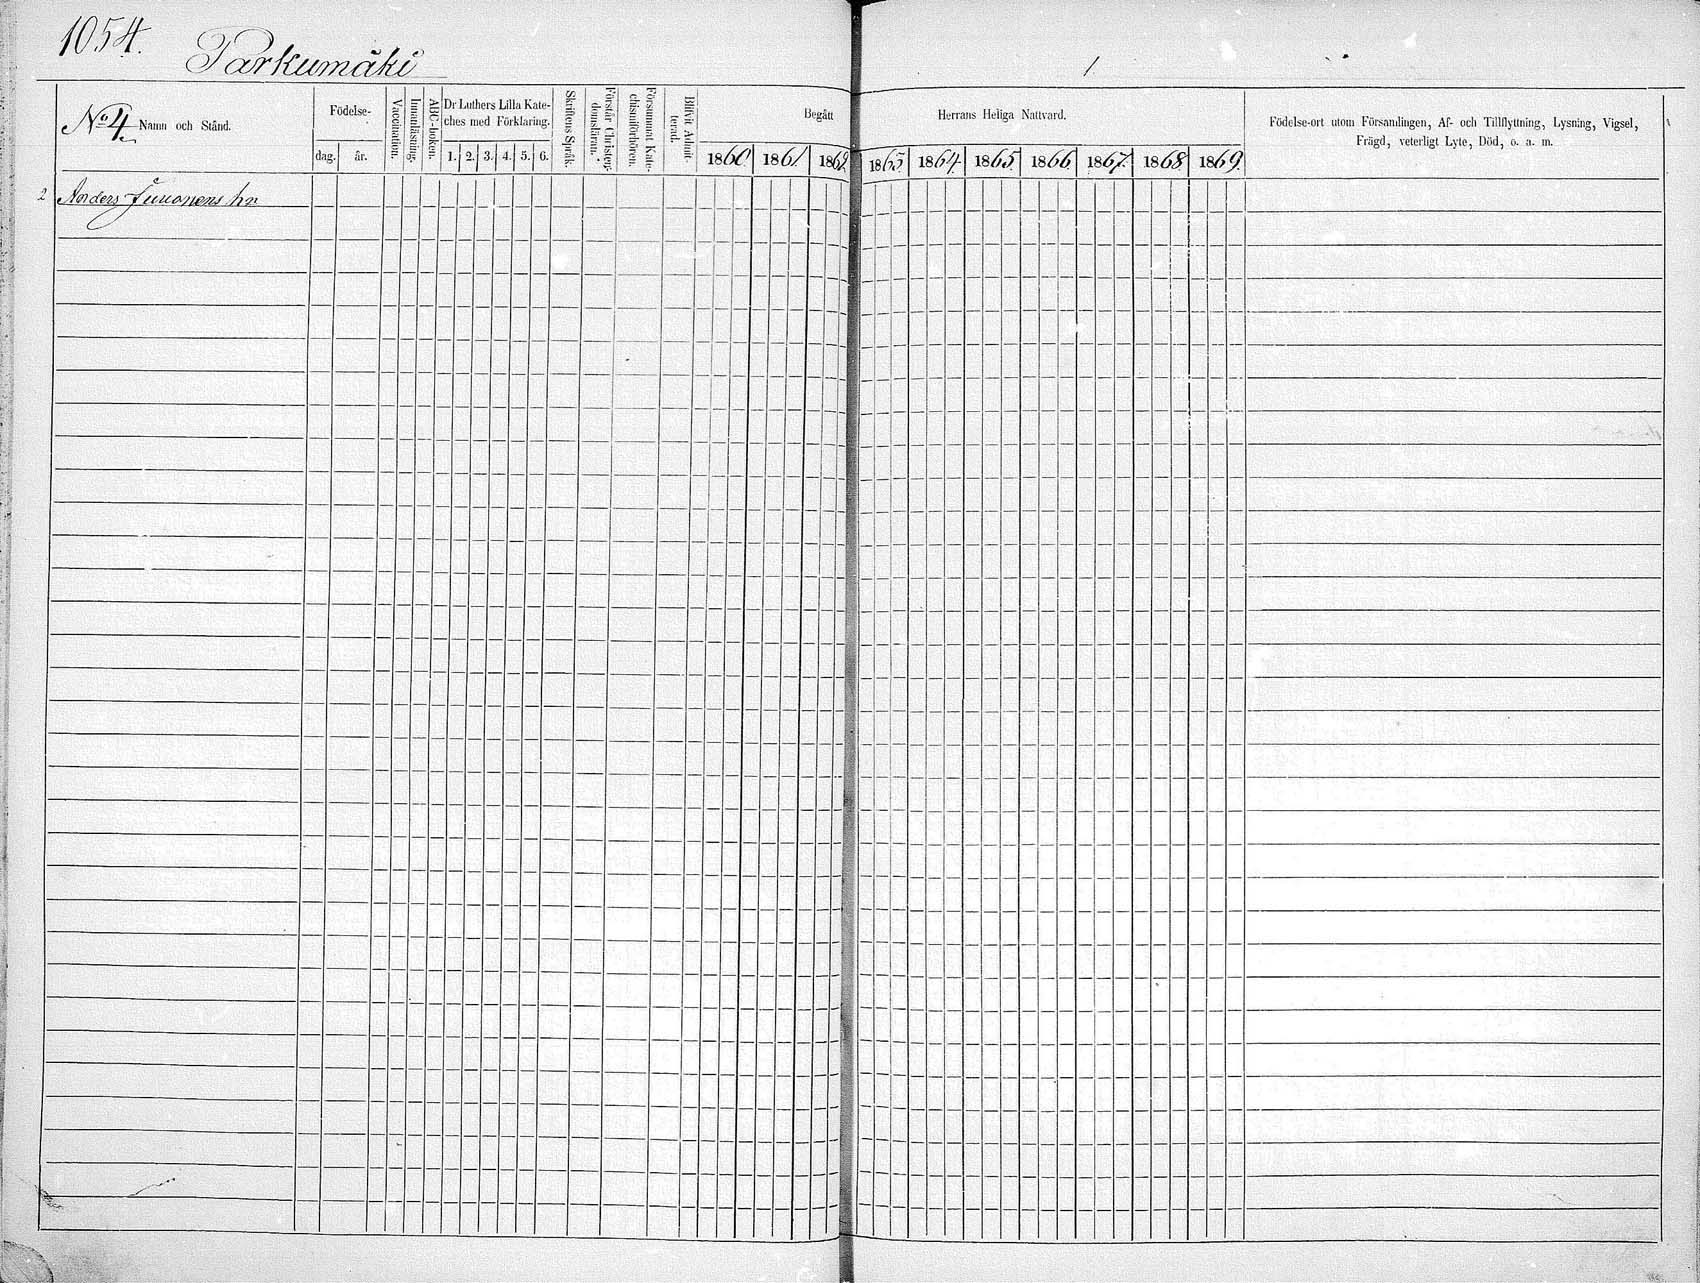 1054.
Parkumäki
No 4. Namn och Stånd.
Födelse-
dag. år.
Vaccination.
Innanläsning.
ABC-boken.
Dr Luthers Lilla Kate-
ches med Förklaring.
1. 2. 3. 4. 5. 6.
Skriftens Språk.
Förstår Christen-
domsläran.
Försummat Kate-
chismiförhören.
Blifvit Admit-
terad.
Begått Herrans Heliga Nattvard.
1860. 1861 1862 1863. 1864. 1865. 1866 1867. 1868 1869.
Födelse-ort utom Församlingen, Af- och Tillflyttning, Lysning, Vigsel,
Frägd, veterligt Lyte, Död, o. a. m.
2 Anders